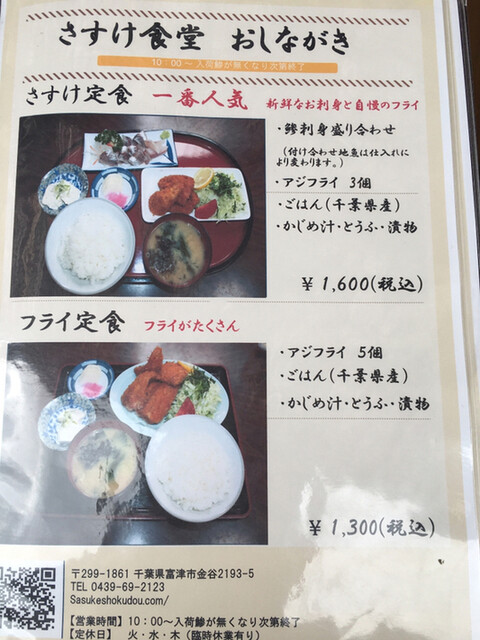 さすけ食堂 おしながき
10：00～入荷鯵が無くなり次第終了
さすけ定食 一番人気 新鮮なお刺身と自慢のフライ
・鯵刺身盛り合わせ
（付け合わせ地魚は仕入れに
より変わります。）
・アジフライ 3個
・ごはん(千葉県産)
・かじめ汁・とうふ・漬物
¥ 1,600(税込)
フライ定食 フライがたくさん
・アジフライ 5個
・ごはん(千葉県産)
・かじめ汁・とうふ・漬物
¥ 1,300(税込)
〒299-1861 千葉県富津市金谷2193-5
TEL 0439-69-2123
Sasukeshokudou.com/
【営業時間】10：00～入荷鯵が無くなり次第終了
【定休日】 火・水・木（臨時休業有り）